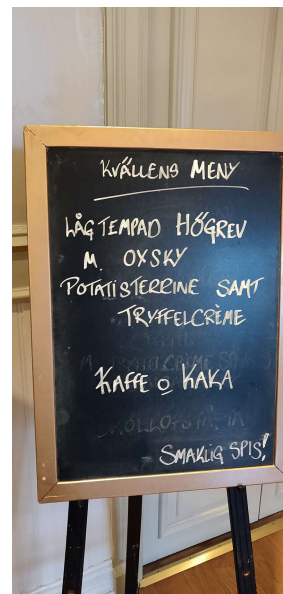 KVÄLLENS MENY
LÅGTEMPAD HÖGREV
M. OXSKY
POTATISTERRINE SAMT
TRYFFELCRÈME
KAFFE O KAKA
SMAKLIG SPIS!